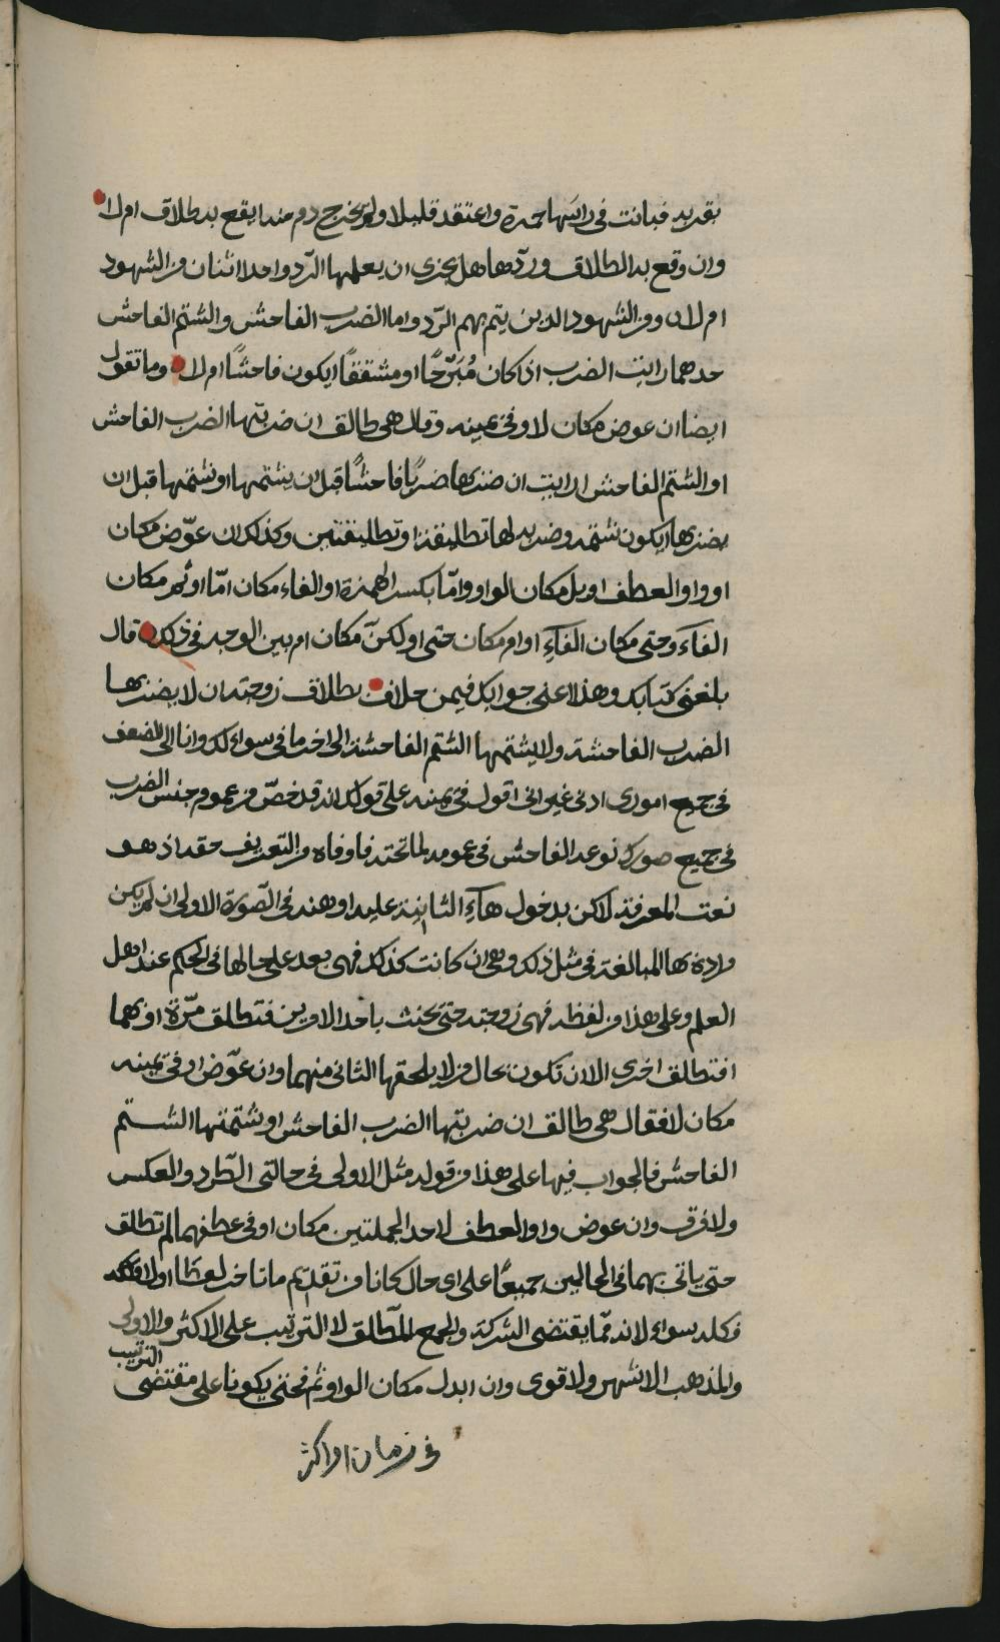 بقربه فبانت في رأسها حمرة واعتقد قليلا ولم يخرج دم منه ايقع به طلاق ام لا
وان وقع به الطلاق وردها هل يجزي ان يعلمها الرد واحد اثنان من الشهود
ام لا ومن الشهود الذين يتم بهم الرد واما الضرب الفاحش والشتم الفاحش
حدهما رايت الضرب اذا كان مُبَرّحًا او مشققًا ايكون فاحشًا ام لا وما تقول
ايضا ان عوض مكان لا وفي يمينه وقال هي طالق ان ضربتها الضرب الفاحش
او الشتم الفاحش ارايت ان ضربها ضربًا فاحشًا قبل ان يشتمها او شتمها قبل ان
يضربها ايكون شتمه وضربه لها تطليقة او تطليقتين وكذلك ان عوّض مكان
او واو العطف او بل مكان الواو وامّا بكسر الهمزة او الفاء مكان امّا او ثم مكان
الفآء وحتى مكان الفآءِ او ام مكان حتى او لكنّ مكان ام بين الوجه في ذلك قال
بلغني كتابك وهذا اعني جوابك فيمن حلف بطلاق زوجته ان لا يضربها
الضرب الفاحشة ولا يشتمها الشتم الفاحشة الى اخر ما في سواءلك وانا الى الضعف
في جميع اموري ادنى غير اني اقول في يمينه على قولك انه قد خصّ من عموم جنس الضرب
في جميع صورك نوعه الفاحش في عمومه لما تحته فاوفاه من التعريف حقه اذ هو
نعت المعرفة لاكن بدخول هآءِ التانيث عليه اوهنه في الصّورة الاولى ان لم يكن
اراده بها المبالغة في مثل ذلك وهي ان كانت كذلك فهي بعد على حالها في الحكم عند اهل
العلم وعلى هذا من لفظه فهي زوجته حتى يحنث باحد الامرين فتطلق مرّة او بهما
افتطلق اخرى الا ان تكون بحال من لا يلحقها الثاني منهما وان عوّض او في يمينه
مكان لا فقال هي طالق ان ضربتها الضرب الفاحش او شتمتها الشتم
الفاحش فالجواب فيها على هذا من قوله مثل الاولى في حالتي الطّرد والعكس
ولا فرق وان عوض واو العطف لاحد الجملتين مكان او في عطفهما لم تطلق
حتى ياتي بهما في الحالين جميعًا على اي حال كانا من تقدّيم ما تاخر لفظا او لا وعكسه
فكله سواء لانه ممّا يقتضي الشركة والجمع المطلق لا الترتيب على الاكثر والاولى
والمذهب الاشهر ولاقوى وان ابدل مكان الواو ثم فحتى يكونا على مقتضى الترتيب
في زمان او اكثر